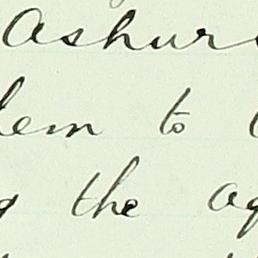 Ashur
lem to
the ag